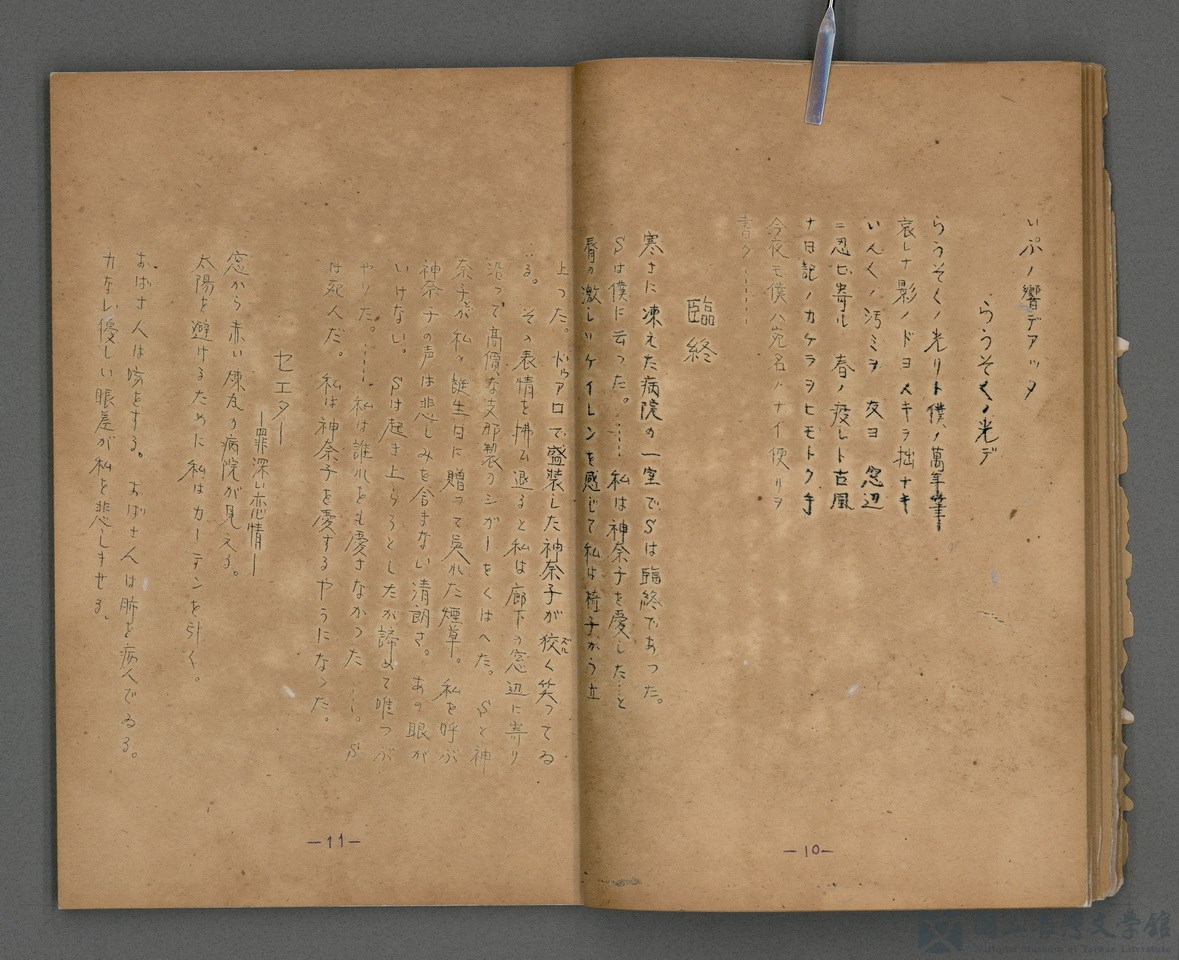 いぷノ響デアッタ
らうそくノ光デ
らうそくノ光リト僕ノ萬年筆ト
哀レナ影ノドヨメキヲ拙ナキ
いんくノ汚ミヲ 夜ヨ 窓辺
ニ忍ビ寄ル 春ノ疲レト古風
ナ日記ノカケラヲヒモトク手
今夜モ僕ハ宛名ノナイ便リヲ
書ク……
臨終
寒さに凍えた病院の一室でSは臨終であつた。
Sは僕に云つた。……私は神奈子を愛した…と
脣の激しいケイレンを感じて私は椅子から立
—10—
上つた。ドゥアロで盛装した神奈子が狡く笑つてゐ
ズル
る。その表情を拂ひ退ると私は廊下の窓辺に寄り
沿つて高價な支那製のシガーをくはへた。Sと神
奈子が私の誕生日に贈つて呉れた煙草。私を呼ぶ
神奈子の声は悲しみを含まない清朗さ。あの眼が
いけない。Sは起き上らうとしたが諦めて唯つぶ
やいた。……私は誰れをも愛さなかつた……。S
は死んだ。私は神奈子を愛するやうになつた。
セエター
—罪深い恋情—
窓から赤い煉瓦の病院が見える。
太陽を避けるために私はカーテンを引く。
おばさんは咳をする。おばさんは肺を病んでゐる。
力なし優しい眼差が私を悲しませる。
—11—
國立臺灣文學館
National Museum of Taiwan Literature